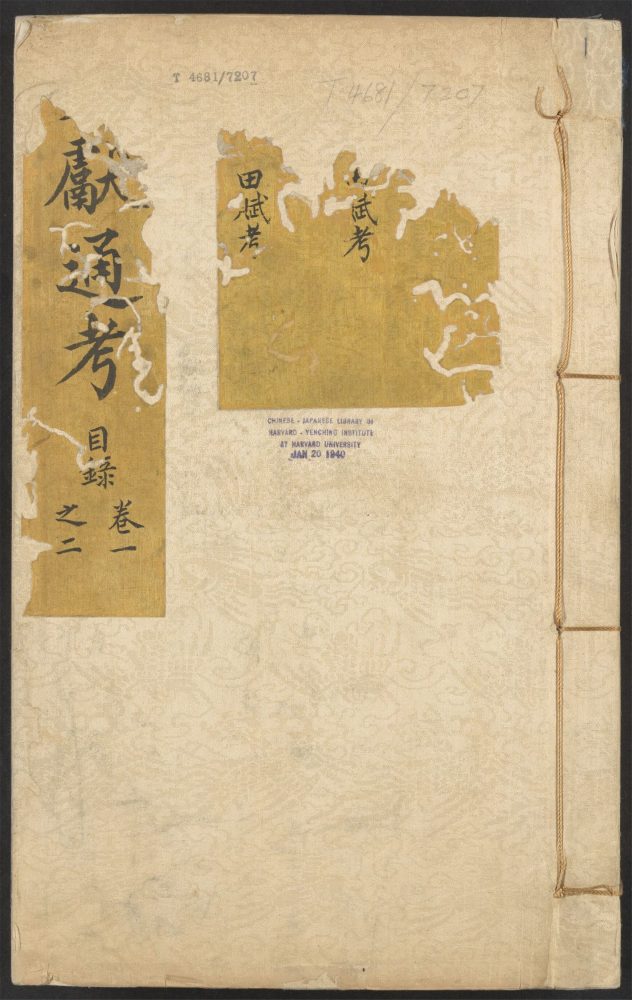 T 4681/7207
T 4681/7207
1
獻通考
目錄
卷一
之二
賦考
田賦考
CHINESE - JAPANESE LIBRARY OF
HARVARD - YENCHING INSTITUTE
AT HARVARD UNIVERSITY
JAN 20 1940